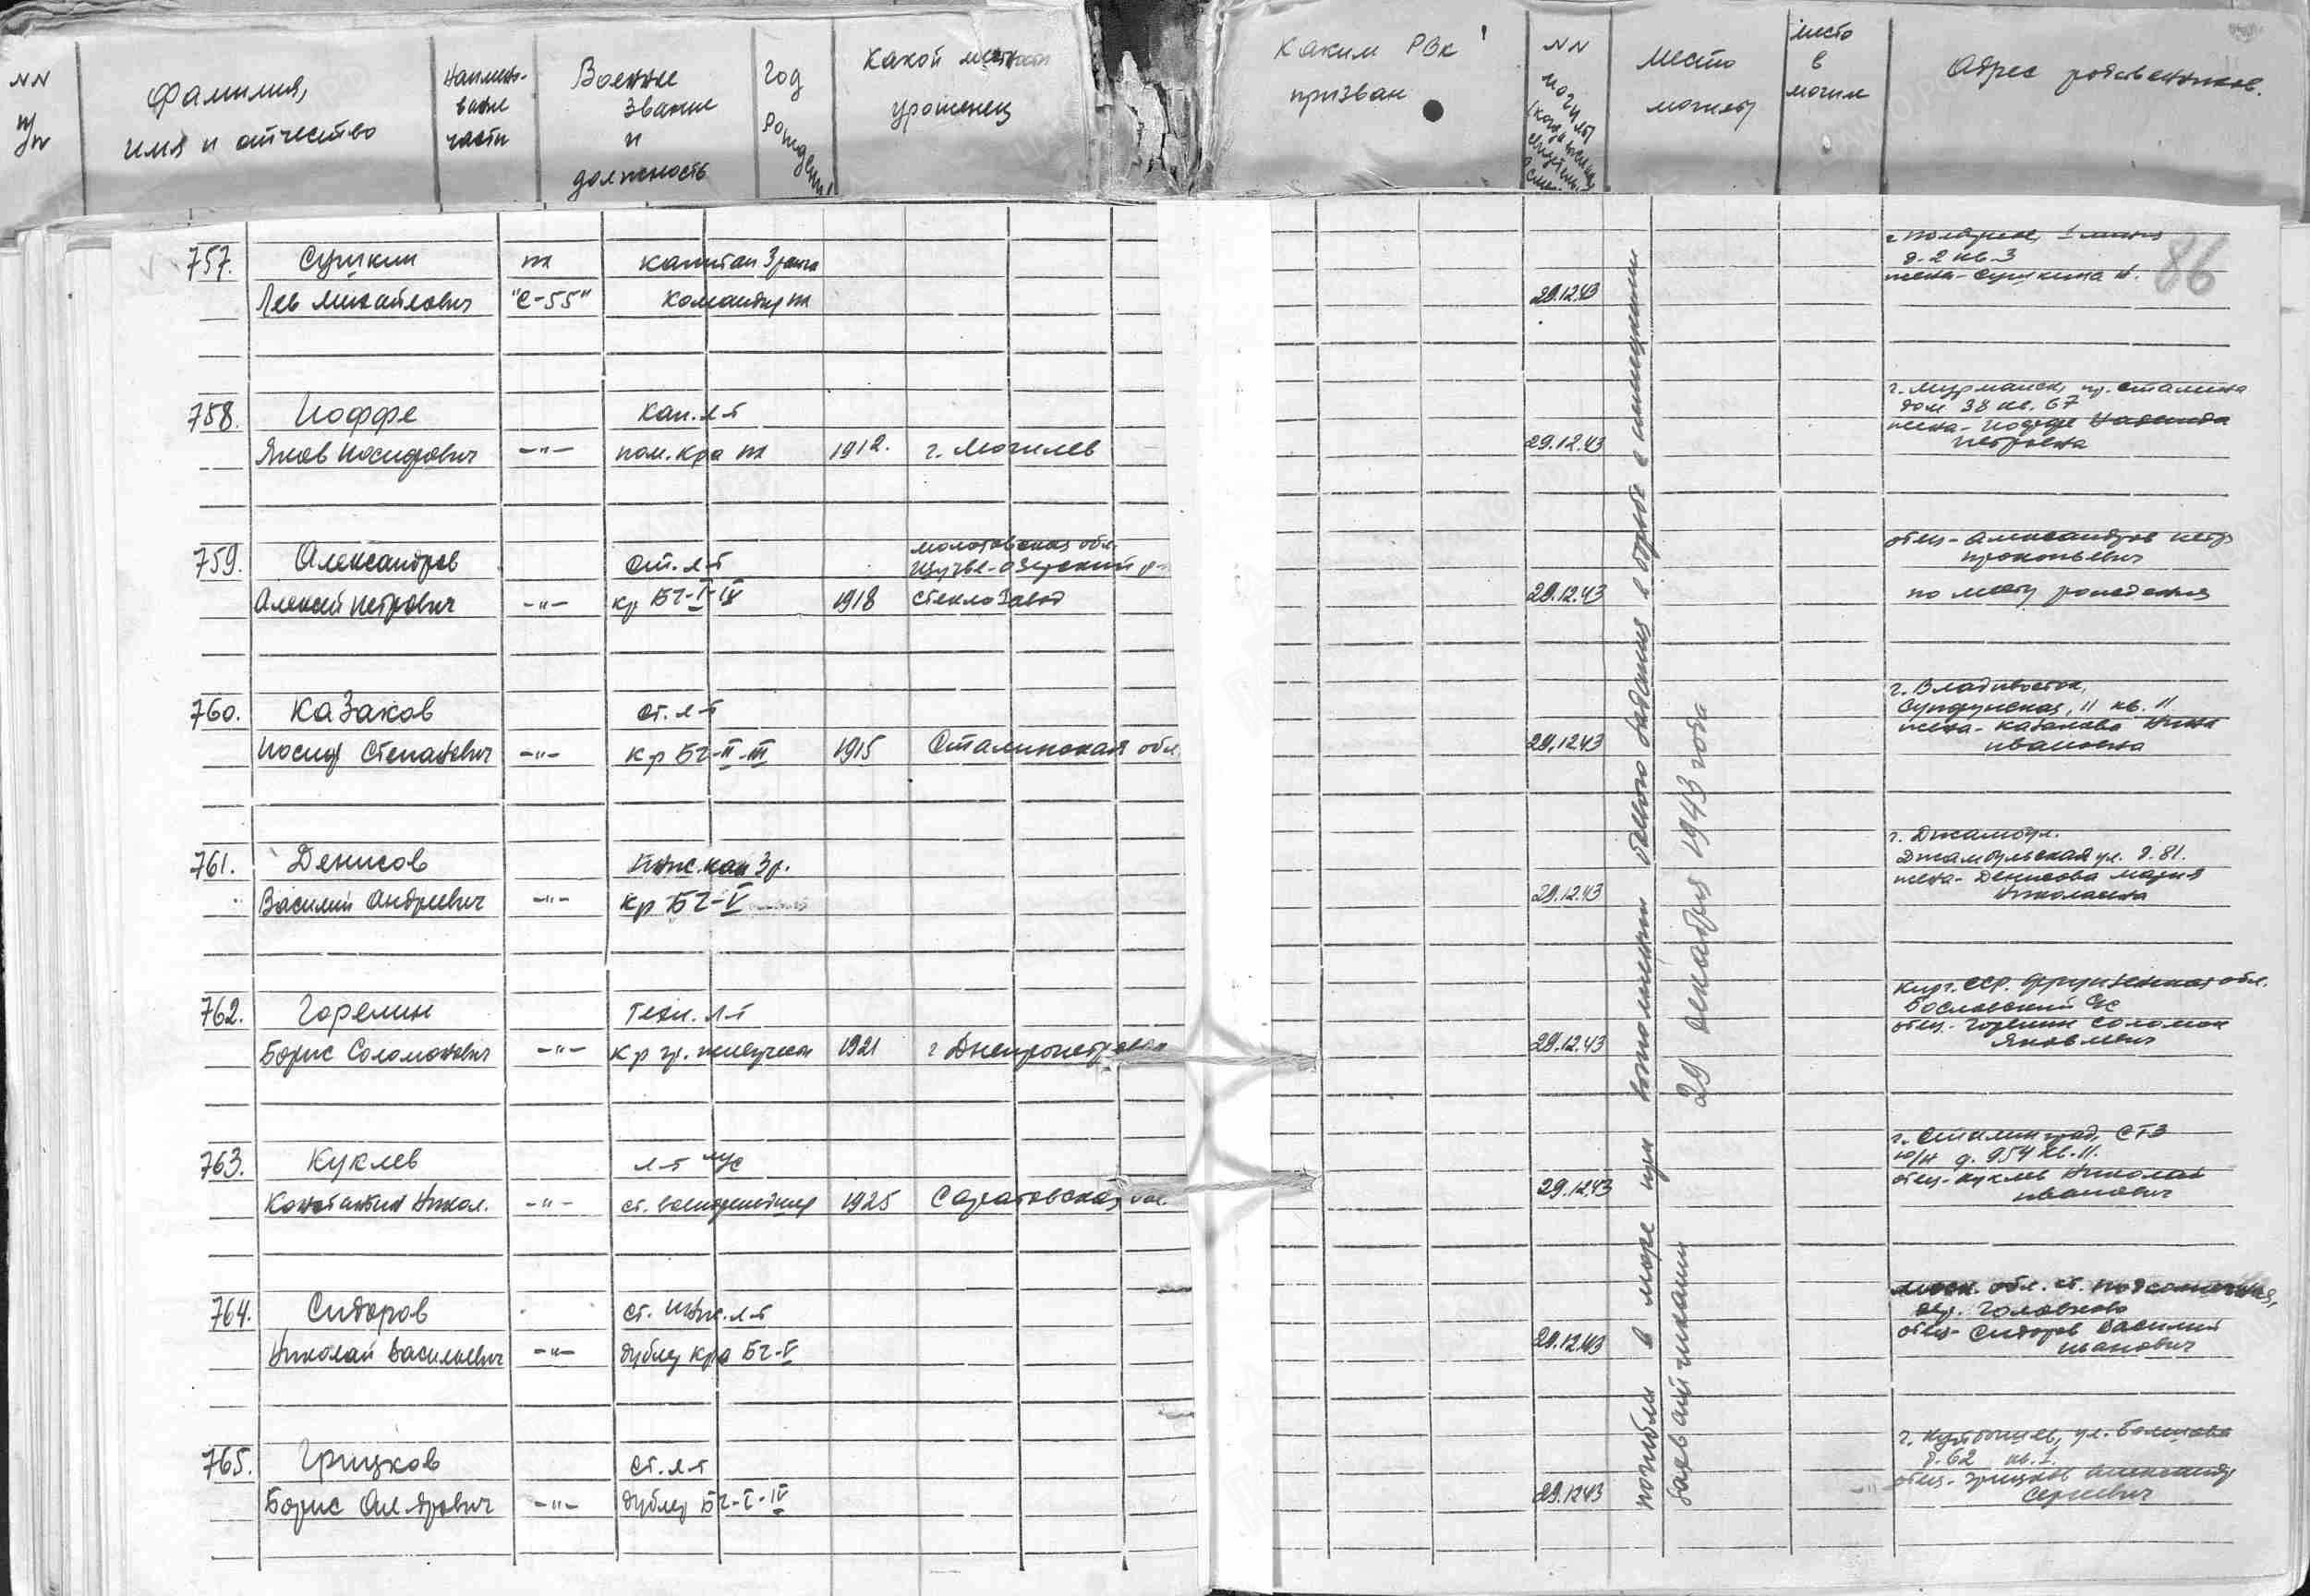 NN п/п
Фамилия, имя и отчество
Наимено-вание части
Военное звание и должность
Год рождения
Какой местности уроженец
Каким РВК призван
NN могилы
Место могилы
Место в могиле
Адрес родственников.
86
757. Сушкин т капитан 3 ранга
Лев Михайлович "С-55" командир пл 29.12.43
г. Полярное, 1 линия
д. 2 кв. 3
жена - Сушкина Н.
758. Иоффе кап. л-т
Яков Иосифович -"- пом. к-ра пл 1912. г. Могилев 29.12.43
г. Мурманск, пр. Сталина
дом 38 кв. 67
жена - Иоффе Надежда
Петровна
759. Александров ст. л-т Молотовская обл.
Щучье-Озерский р-
Алексей Петрович -"- к-р БЧ-I-IV 1918 стеклозавод 29.12.43
отец - Александров Петр
Прокопьевич
по месту рождения
760. Казаков ст. л-т
Иосиф Степанович -"- к-р БЧ-II-III 1915 Сталинская обл. 29.12.43
г. Владивосток,
Суйфунская, 11 кв. 11
жена - Казакова Нина
Ивановна
761. Денисов Инж. кап 3 р.
Василий Андреевич -"- к-р БЧ-V 29.12.43
г. Джамбул.
Джамбульская ул. д. 81.
жена - Денисова Мария
Николаевна
762. Горелик Техн. л-т
Борис Соломонович -"- к-р гр. движения 1921 г Днепропетровск 29.12.43
Кирг. ССР. Фрунзенская обл.
отец - Горелик Соломон
Яковлевич
763. Куклев л-т м/с
Константин Никол. -"- ст. военфельдшер 1925 Саратовская обл. 29.12.43
г. Сталинград, СТЗ
д. 954 кв. 11.
отец - Куклев Николай
Иванович
764. Сидоров ст. инж. л-т
Николай Васильевич -"- дублер к-ра БЧ-V 29.12.43
Моск. обл. ст. Подсолнечная,
дер. Головково
отец - Сидоров Василий
Иванович
765. Грицков ст. л-т
Борис Ал-дрович -"- дублер БЧ-I-IV 29.12.43
г. Куйбышев,
д. 62 кв. 1.
отец - Грицков Александр
Сергеевич
погибли в море при выполнении боевого задания в борьбе с немецкими
захватчиками 29 декабря 1943 года